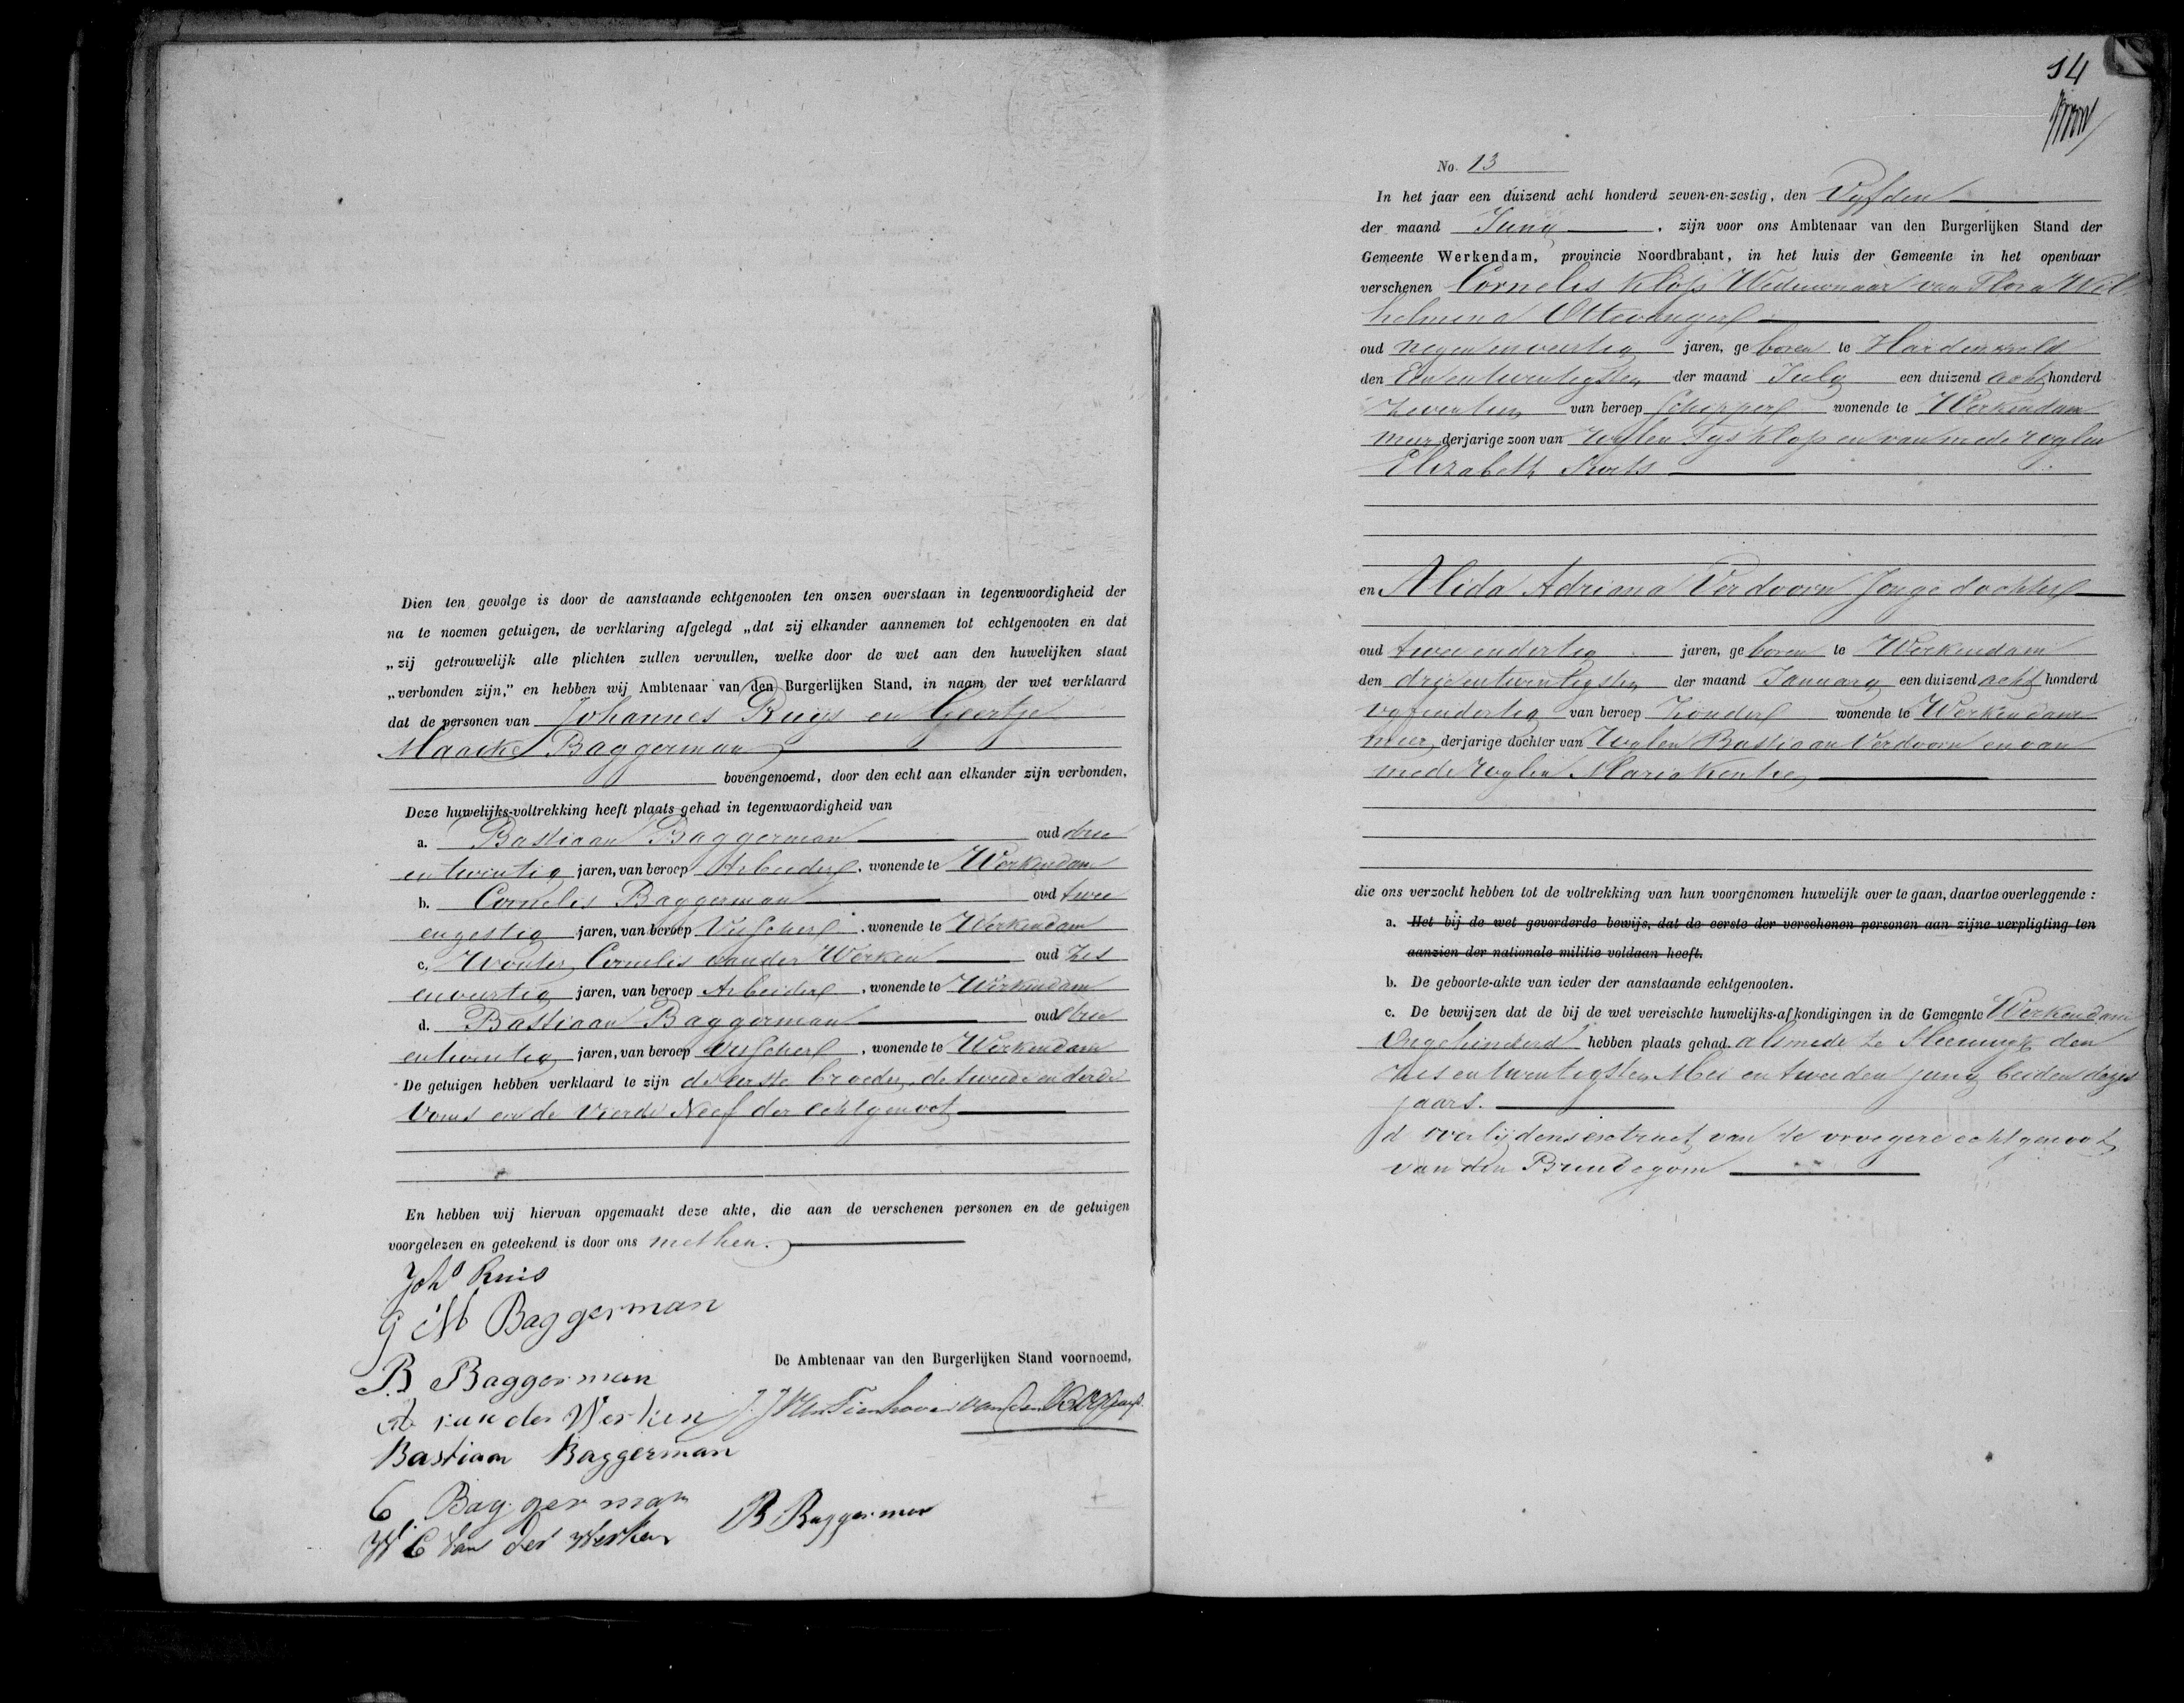 Dien ten gevolge is door de aanstaande echtgenooten ten onzen overstaan in tegenwoordigheid der
na te noemen getuigen, de verklaring afgelegd „dat zij elkander aannemen tot echtgenooten en dat
„zij getrouwelijk alle plichten zullen vervullen, welke door de wet aan den huwelijken staat
„verbonden zijn," en hebben wij Ambtenaar van den Burgerlijken Stand, in naam der wet verklaard
dat de personen van Johannes Ruijs en Geertje
Maaike Baggerman
bovengenoemd, door den echt aan elkander zijn verbonden,
Deze huwelijks-voltrekking heeft plaats gehad in tegenwaordigheid van
a. Bastiaan Baggerman oud drie
en twintig jaren, van beroep Arbeider, wonende te Werkendam
b. Cornelis Baggerman oud twee
en zestig jaren, van beroep Visscher, wonende te Werkendam
c. Wouter Cornelis van der Werken oud Zes
en veertig jaren, van beroep Arbeider, wonende te Werkendam
d. Bastiaan Baggerman oud drie
en twintig jaren, van beroep Visscher, wonende te Werkendam
De getuigen hebben verklaard te zijn de eerste broeder, de tweede en derde
Ooms en de Vierde Neef der echtgenoot
En hebben wij hiervan opgemaakt deze akte, die aan de verschenen personen en de getuigen
voorgelezen en geteekend is door ons met hen.
Joh⁠s Ruis
G M Baggerman
B Baggerman
De Ambtenaar van den Burgerlijken Stand voornoemd,
A van der Werken
Bastiaan Baggerman
C Baggerman
B Baggerman
W C Van der Werken
14
No. 13
In het jaar een duizend acht honderd zeven-en-zestig, den Vyfden
der maand Juny, zijn voor ons Ambtenaar van den Burgerlijken Stand der
Gemeente Werkendam, provincie Noordbrabant, in het huis der Gemeente in het openbaar
verschenen Cornelis Klop Weduwnaar van Flora Wil
helmina Ottevanger
oud negen en veertig jaren, geboren te Hardinxveld
den Een en twintigsten der maand July een duizend acht honderd
Zeventien van beroep Schipper wonende te Werkendam
meerderjarige zoon van Wylen Tys Klop en van mede wylen
Elizabeth
en Alida Adriana Verdoorn Jonge dochter
oud twee en dertig jaren, geboren te Werkendam
den drie en twintigsten der maand January een duizend acht honderd
vyf en dertig van beroep Zonder wonende te Werkendam
meerderjarige dochter van Wylen Bastiaan Verdoorn en van
mede Wylen Maria
die ons verzocht hebben tot de voltrekking van hun voorgenomen huwelijk over te gaan, daartoe overleggende :
a. Het bij de wet gevorderde bewijs, dat de eerste der verschenen personen aan zijne verpligting ten
aanzien der nationale militie voldaan heeft.
b. De geboorte-akte van ieder der aanstaande echtgenooten.
c. De bewijzen dat de bij de wet vereischte huwelijks-afkondigingen in de Gemeente Werkendam
Ongehinderd hebben plaats gehad. alsmede te Sleeuwyk den
zes en twintigsten Mei en tweeden Juny beiden dezes
jaars.
d overlijdens extract van de vroegere echtgenoot
van den Bruidegom